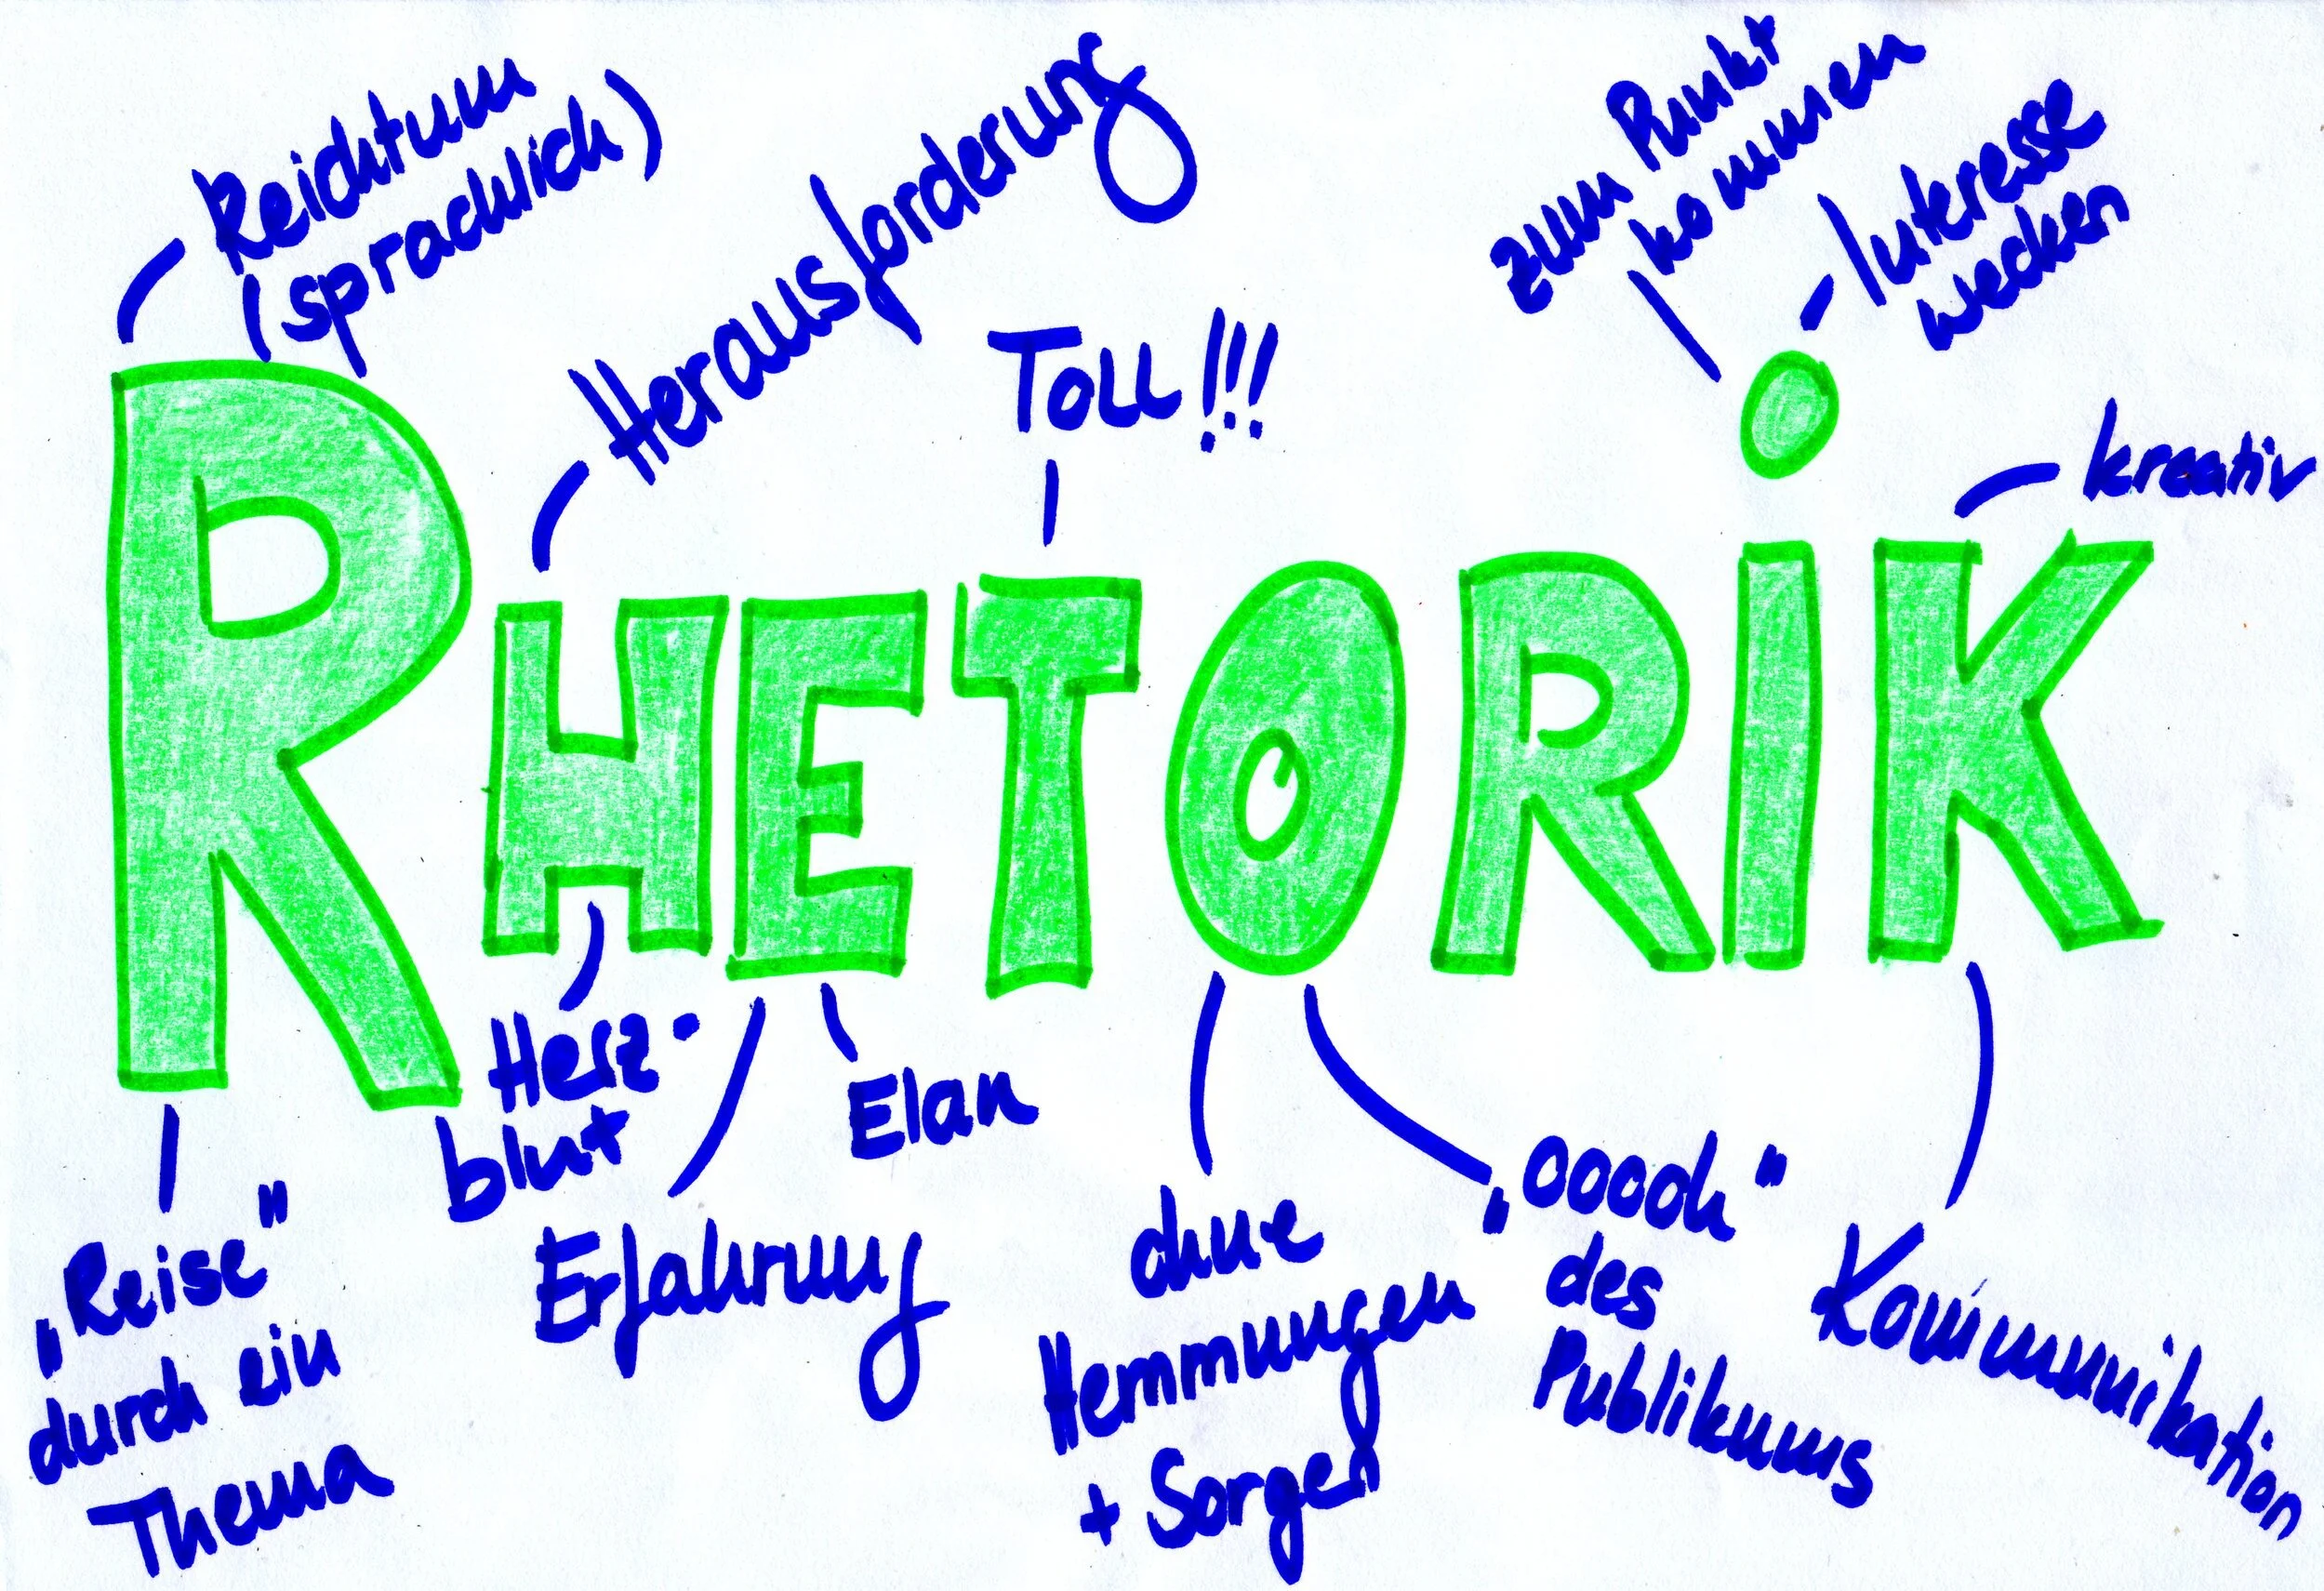 Reichtum
(sprachlich)
Herausforderung
Toll!!!
zum Punkt
kommen
Interesse
wecken
kreativ
RHETORiK
Herz-
blut
Elan
Erfahrung
„Reise"
durch ein
Thema
ohne
Hemmungen
+ Sorgen
„ooooh"
des
Publikums
Kommunikation